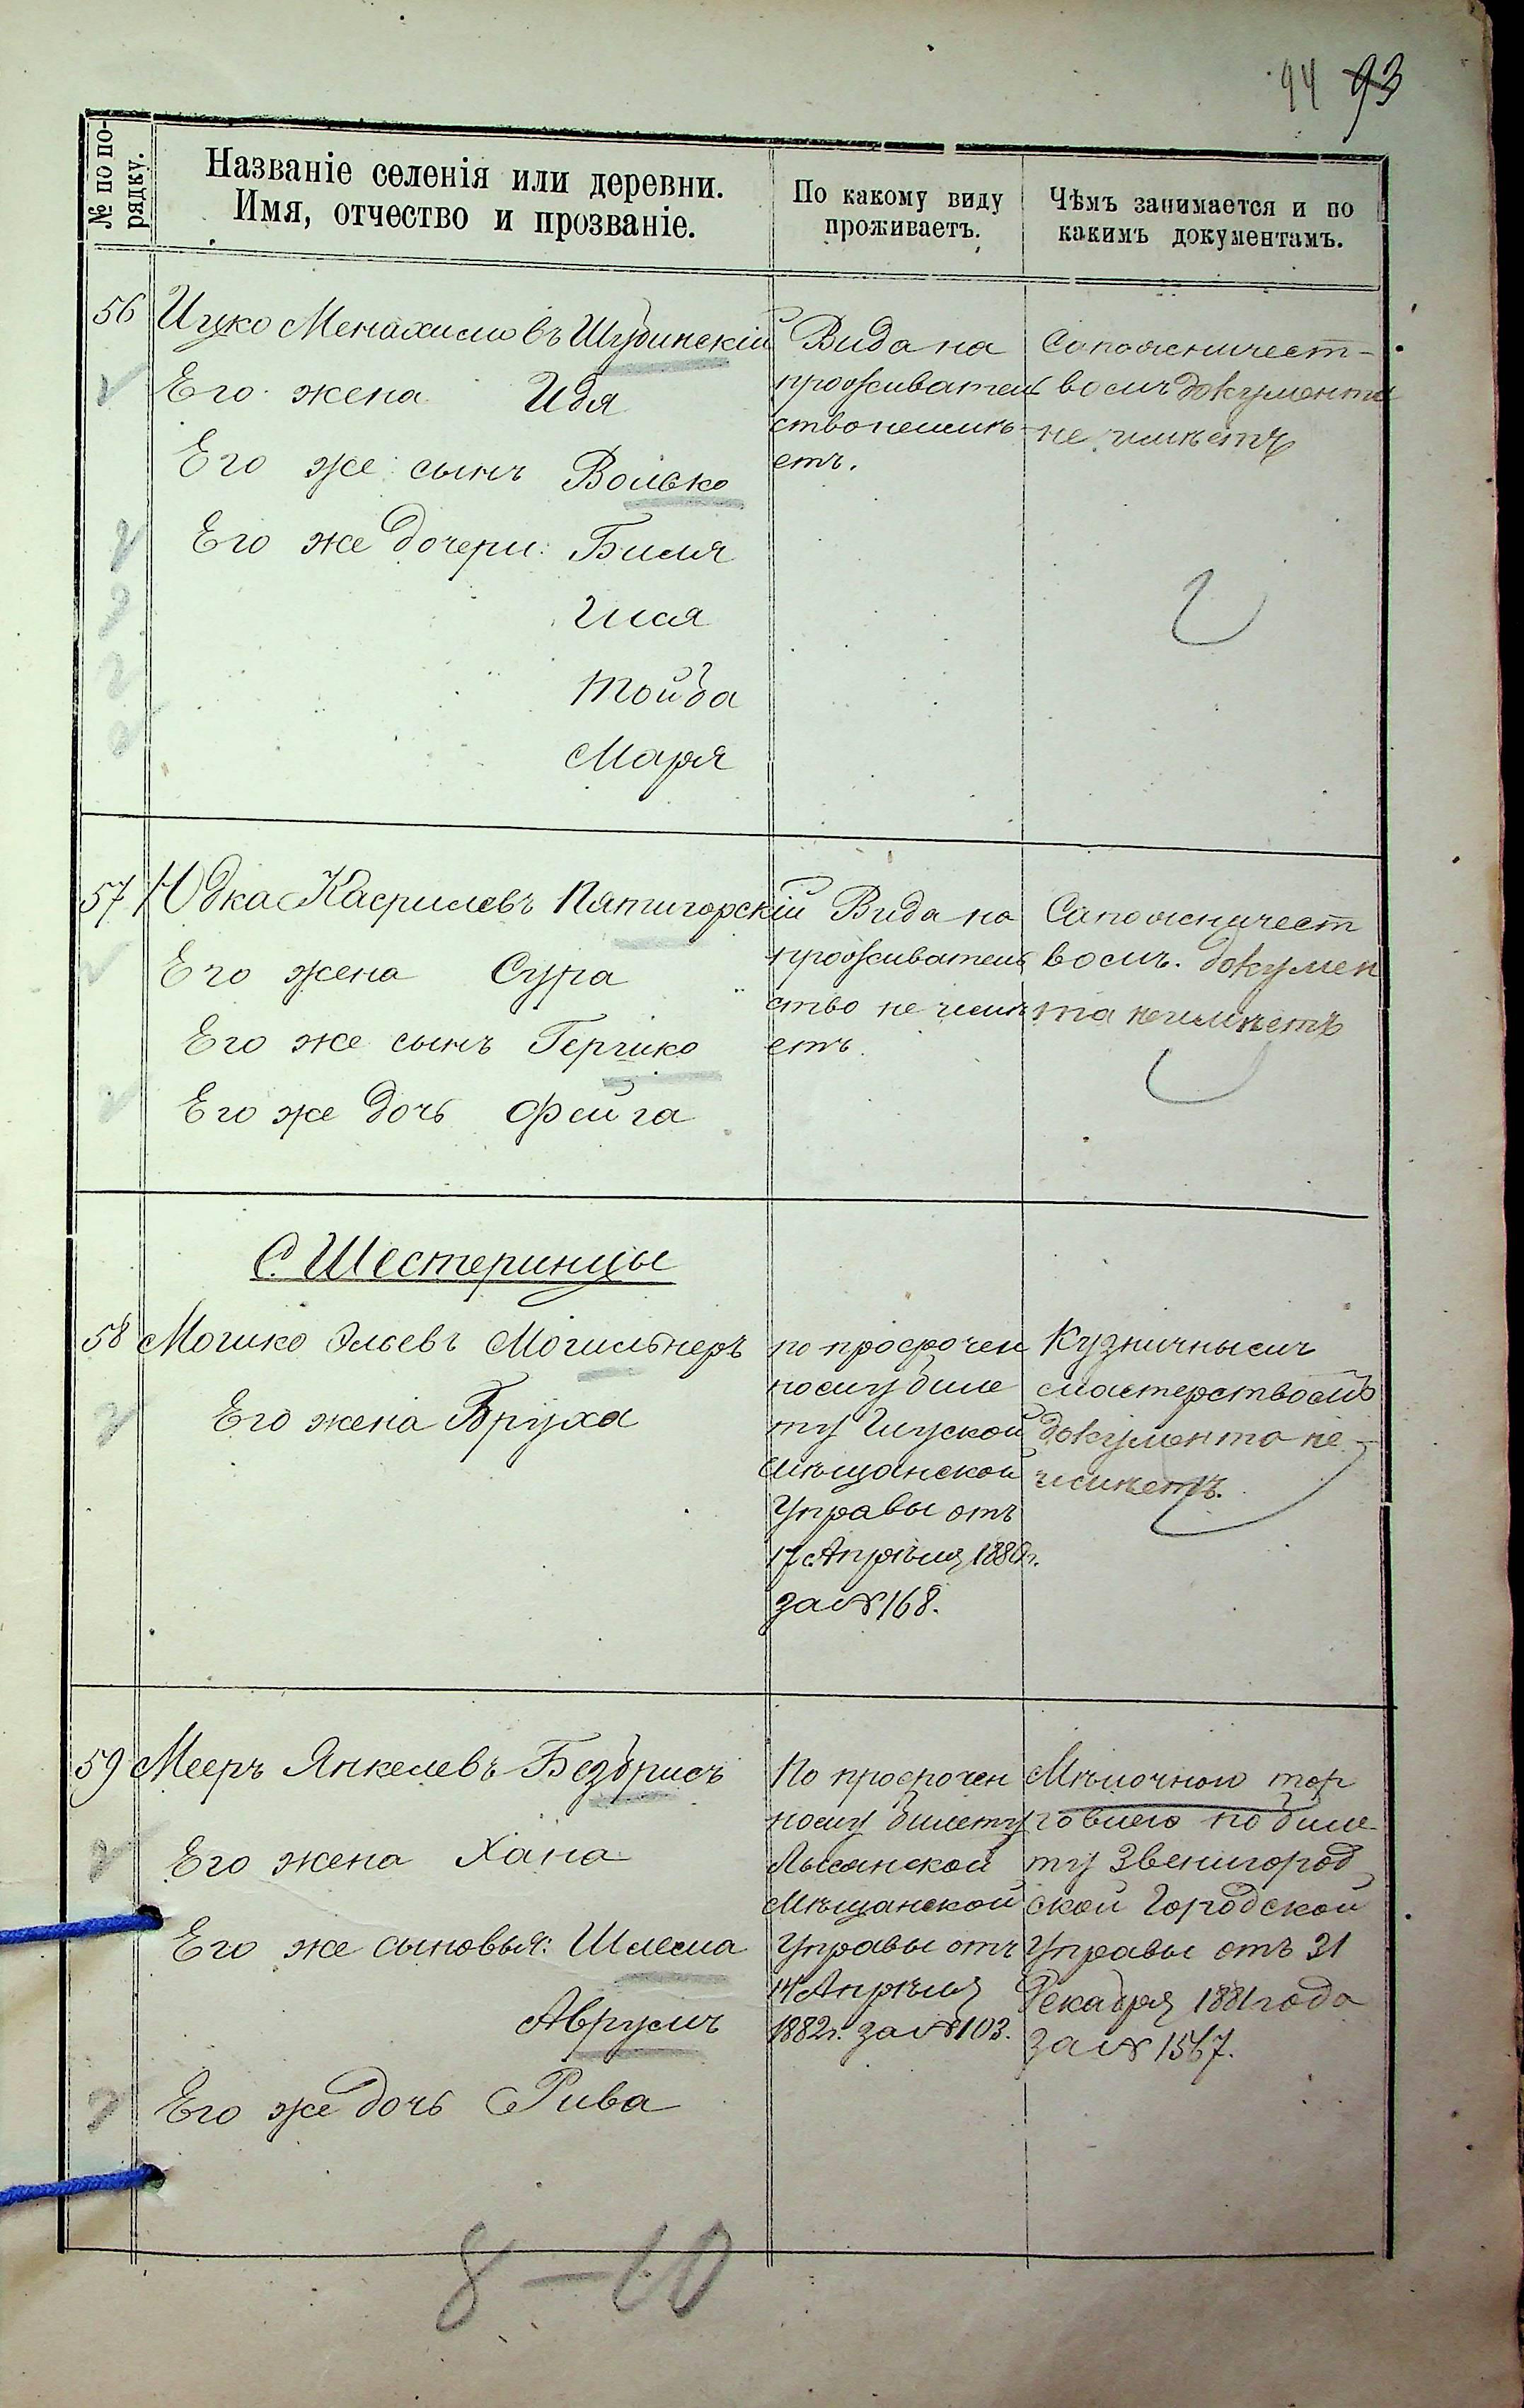 94 93
№ по по-
рядку.
Названіе селенія или деревни.
Имя, отчество и прозваніе.
По какому виду
проживаетъ.
Чѣмъ занимается и по
какимъ документамъ.
56 Ицко Менахимовъ
Его жена Идя
Его же сынъ Волько
Его же дочери: Бимя
Тойба
Маря
Вида на
проживатель
ство неимѣ-
етъ.
Сапожничест-
вомъ документа
не имѣетъ
57 Юдка Касрилевъ Пятигорскій
Его жена Сура
Его же сынъ Гершко
Его же дочь Фейга
Вида на
проживатель
ство не имѣ
етъ.
Сапожничест
вомъ. докумен
та неимѣетъ
С. Шестеринцы
58 Мошко Эльевъ Могильнеръ
Его жена Бруха
по просрочен
ному биле
ту
Мѣщанской
Управы отъ
17 Апрѣля
за № 168.
Кузничнымъ
мастерствомъ
документа не-
имѣетъ.
59 Мееръ Янкелевъ
Его жена Хана
Его же сыновья: Шлема
Аврумъ
Его же дочь Рива
По просрочен
ному билету
Лысянской
Мѣщанской
Управы отъ
14 Апрѣля
1882г. за № 103.
Мѣлочною тор
говлею по биле-
ту Звенигород
ской Городской
Управы отъ 31
Декабря 1881 года
за № 1567.
8-10